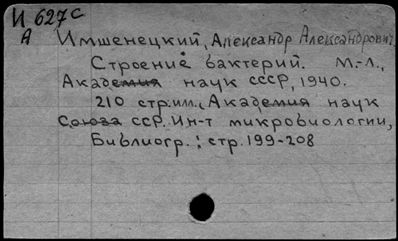 И 627с
А Имшенецкий, Александр Александрович
Строение бактерий. М.-Л.,
Академия наук СССР, 1940.
210 стр. илл., Академия наук
Союза ССР. Ин-т микробиологии,
Библиогр.: стр. 199-208